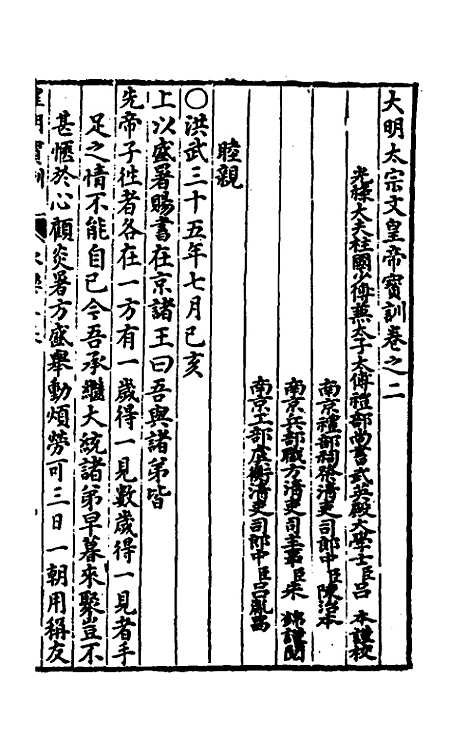 大明太宗文皇帝寳訓卷之二
光祿大夫柱國少傅蕪太子太傅禮部尚書武英殿大學士臣吕 本謹校
南京禮部祠祭清吏司郎中臣陳治本
南京兵部職方清吏司主事臣朱 錦謹閲
南京工部虞衡清吏司郎中臣吕胤昌
睦親
○洪武三十五年七月己亥
上以盛暑賜書在京諸王曰吾與諸弟皆
先帝子徃者各在一方有一歲得一見數歲得一見者手
足之情不能自已今吾承繼大統諸弟早暮來聚豈不
甚愜於心顧炎暑方盛舉動煩勞可三日一朝用稱友
皇明寳訓